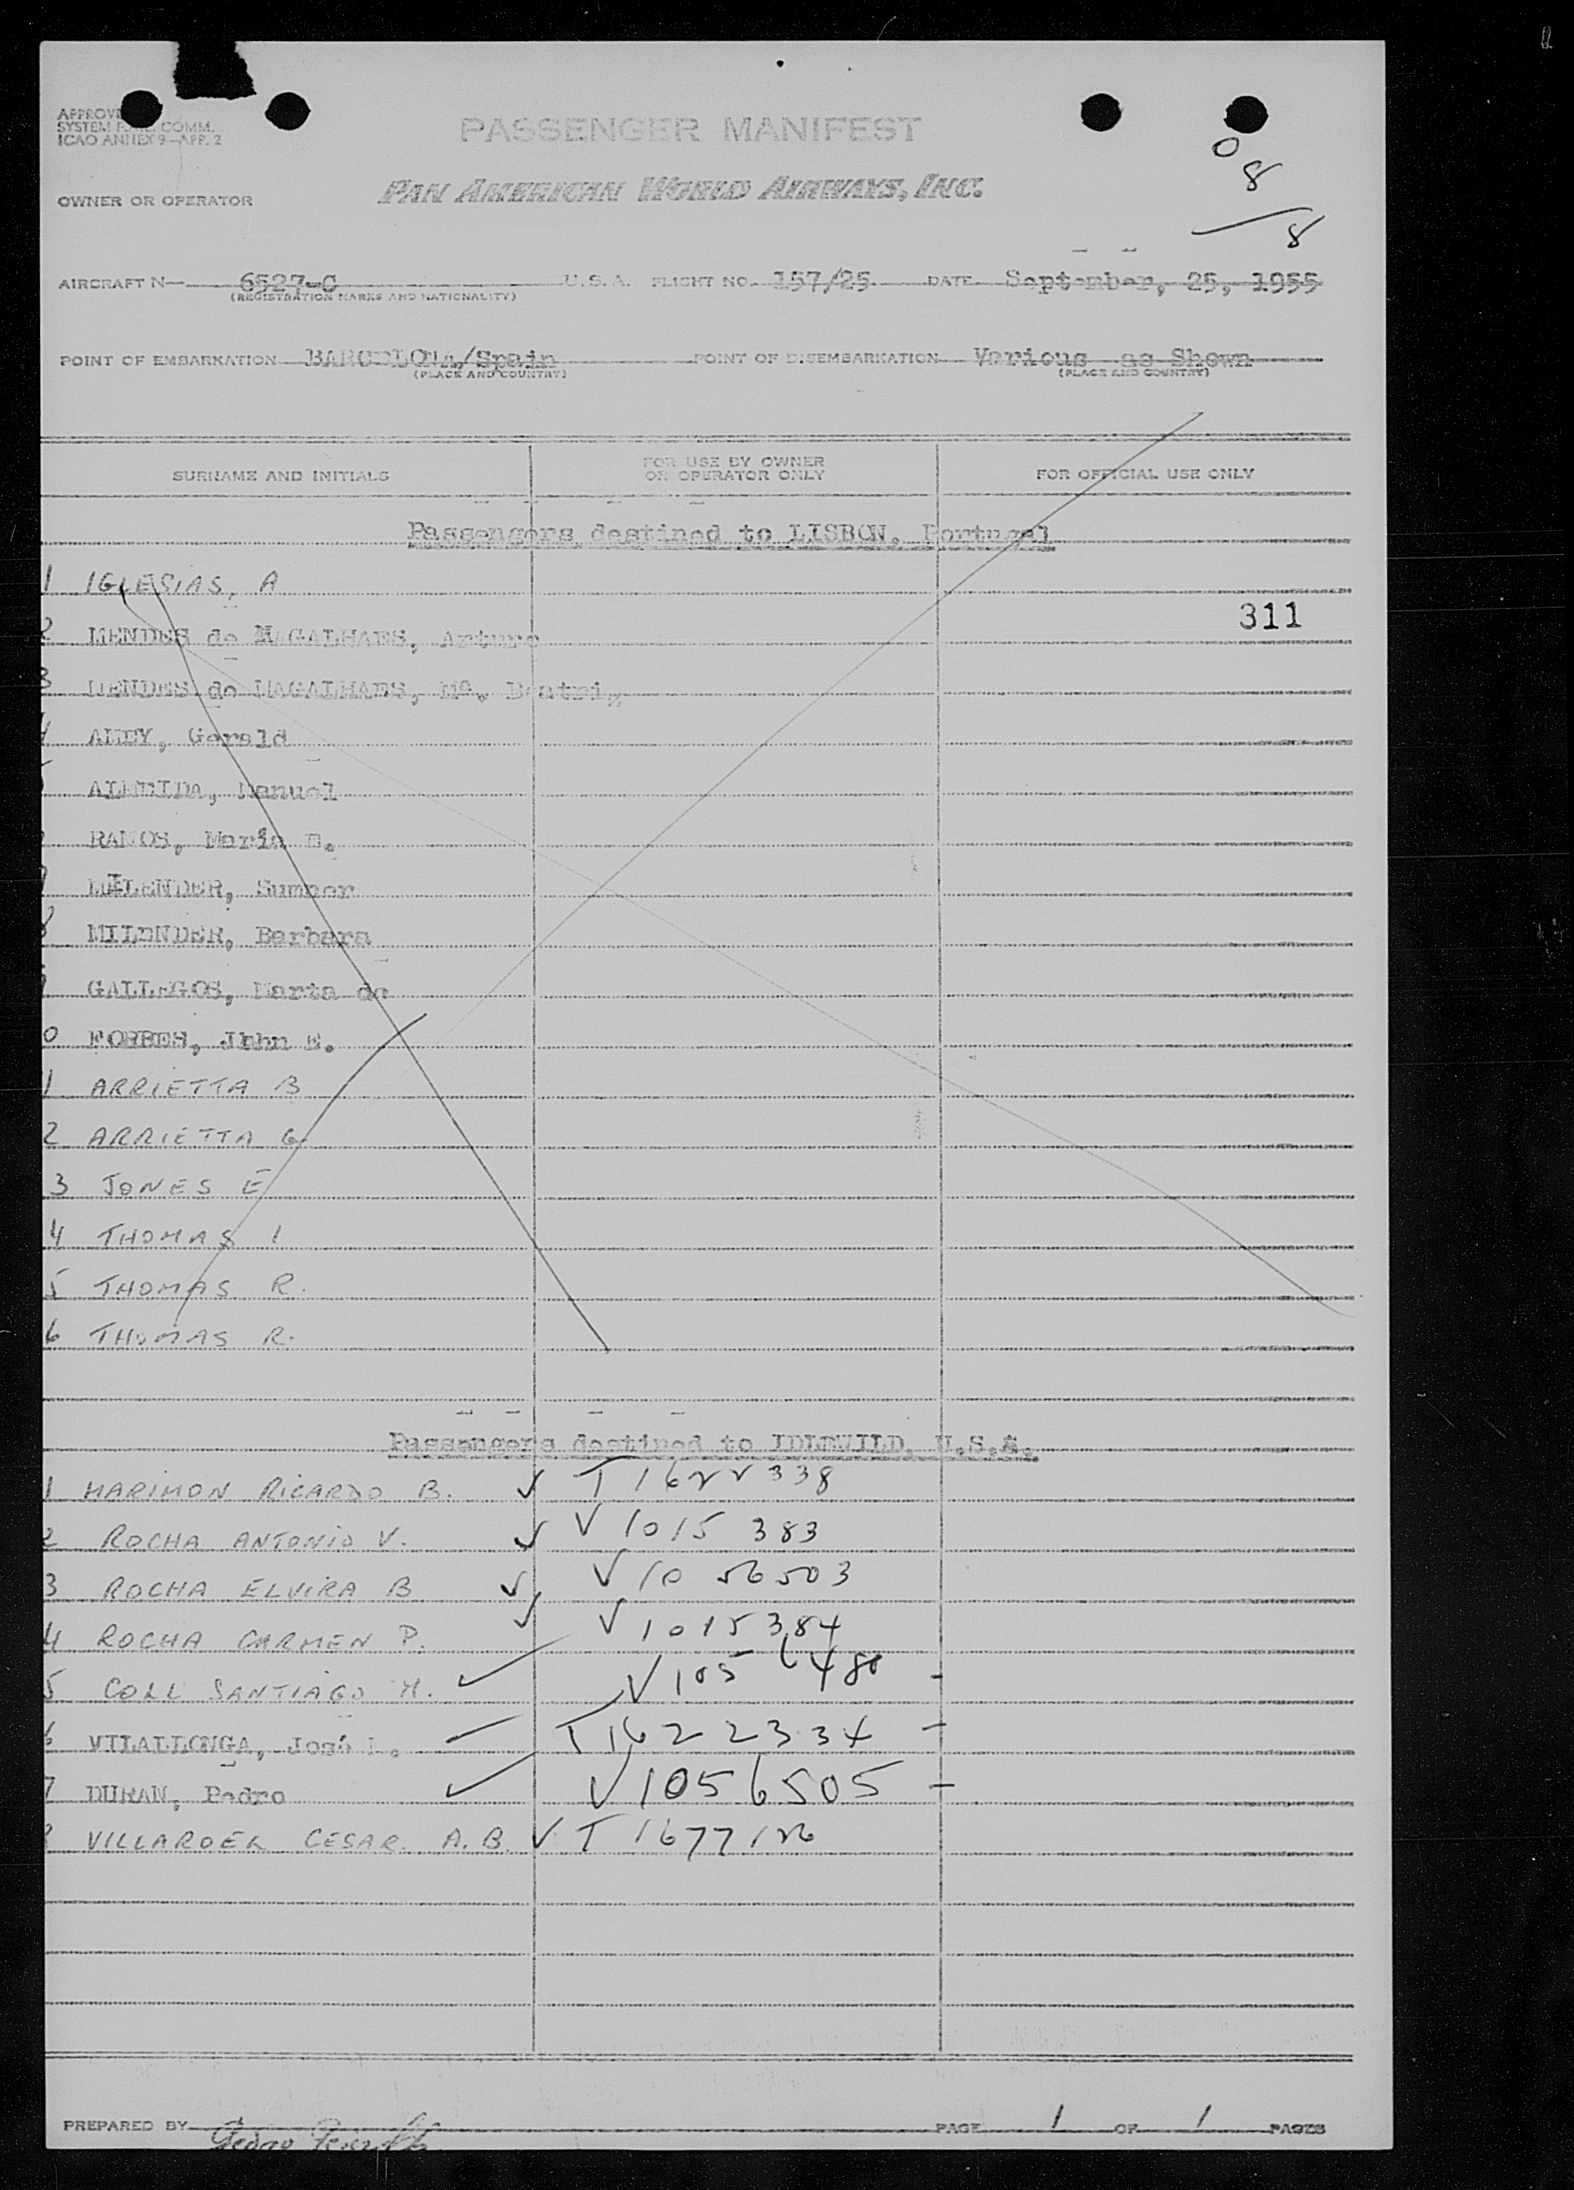 APPROVED
SYSTEM FAL. COMM.
ICAO ANNEX 9-APP. 2
PASSENGER MANIFEST
0
8
8
OWNER OR OPERATOR PAN AMERICAN WORLD AIRWAYS, INC.
AIRCRAFT N 6527-C U.S.A. FLIGHT NO. 157/25 DATE September, 25, 1955
(REGISTRATION MARKS AND NATIONALITY)
POINT OF EMBARKATION BARCELONA/Spain POINT OF DISEMBARKATION Various as Shown
(PLACE AND COUNTRY) (PLACE AND COUNTRY)
SURNAME AND INITIALS FOR USE BY OWNER OR OPERATOR ONLY FOR OFFICIAL USE ONLY
Passengers destined to LISBON, Portugal
1 IGLESIAS, A
311
2 MENDES de MAGALHAES, Arturo
3 MENDES de MAGALHAES, Mª. Beatriz
4 AMEY, Gerald
5 ALMEIDA, Manuel
RAMOS, Maria E.
7 MILENDER, Sumner
8 MILENDER, Barbara
9 GALLEGOS, Marta de
0 FORBES, John E.
1 ARRIETTA B
2 ARRIETTA G.
3 JONES E
4 THOMAS I
5 THOMAS R.
6 THOMAS R.
Passengers destined to IDLEWILD, U.S.A.
1 MARIMON RICARDO B. ✓ T 1622338
2 ROCHA ANTONIO V. ✓ V 1015 383
3 ROCHA ELVIRA B ✓ V 10 56503
4 ROCHA CARMEN P. ✓ V 1015384
5 COLL SANTIAGO M. ✓ V 105 6 480 -
6 VILALLONGA, José L. T 1622334 -
7 DURAN, Pedro ✓ V 1056505 -
8 VILLAROEL CESAR. A.B. ✓ T 1677126
PREPARED BY Pedro
PAGE 1 OF 1 PAGES